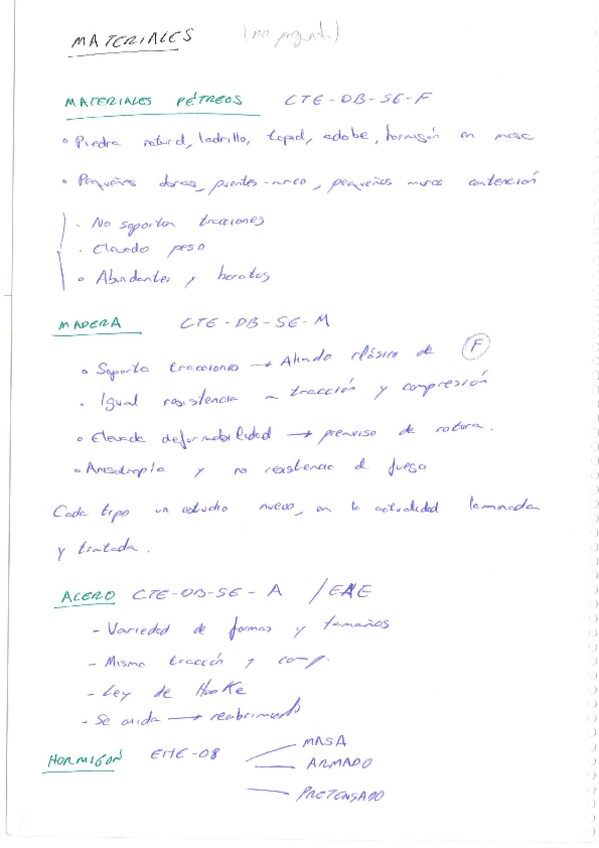 MATERIALES (no pregunta)
MATERIALES PÉTREOS CTE-DB-SE-F
• Piedra natural, ladrillo, tapial, adobe, hormigón en masa
• Pequeñas obras, puentes-arco, pequeños muros contención
· No soportan tracciones
· Elevado peso
• Abundantes y baratos
MADERA CTE-DB-SE-M
• Soporta tracciones → Aliado clásico de F
• Igual resistencia a tracción y compresión
• Elevada deformabilidad → preaviso de rotura.
• Anisotropía y no resistencia al fuego
Cada tipo un estudio nuevo, en la actualidad laminada
y tratada.
ACERO CTE-DB-SE-A /EAE
- Variedad de formas y tamaños
- Misma tracción y comp.
- Ley de Hooke
- Se oxida → recubrimiento
HORMIGÓN EHE-08
MASA
ARMADO
PRETENSADO